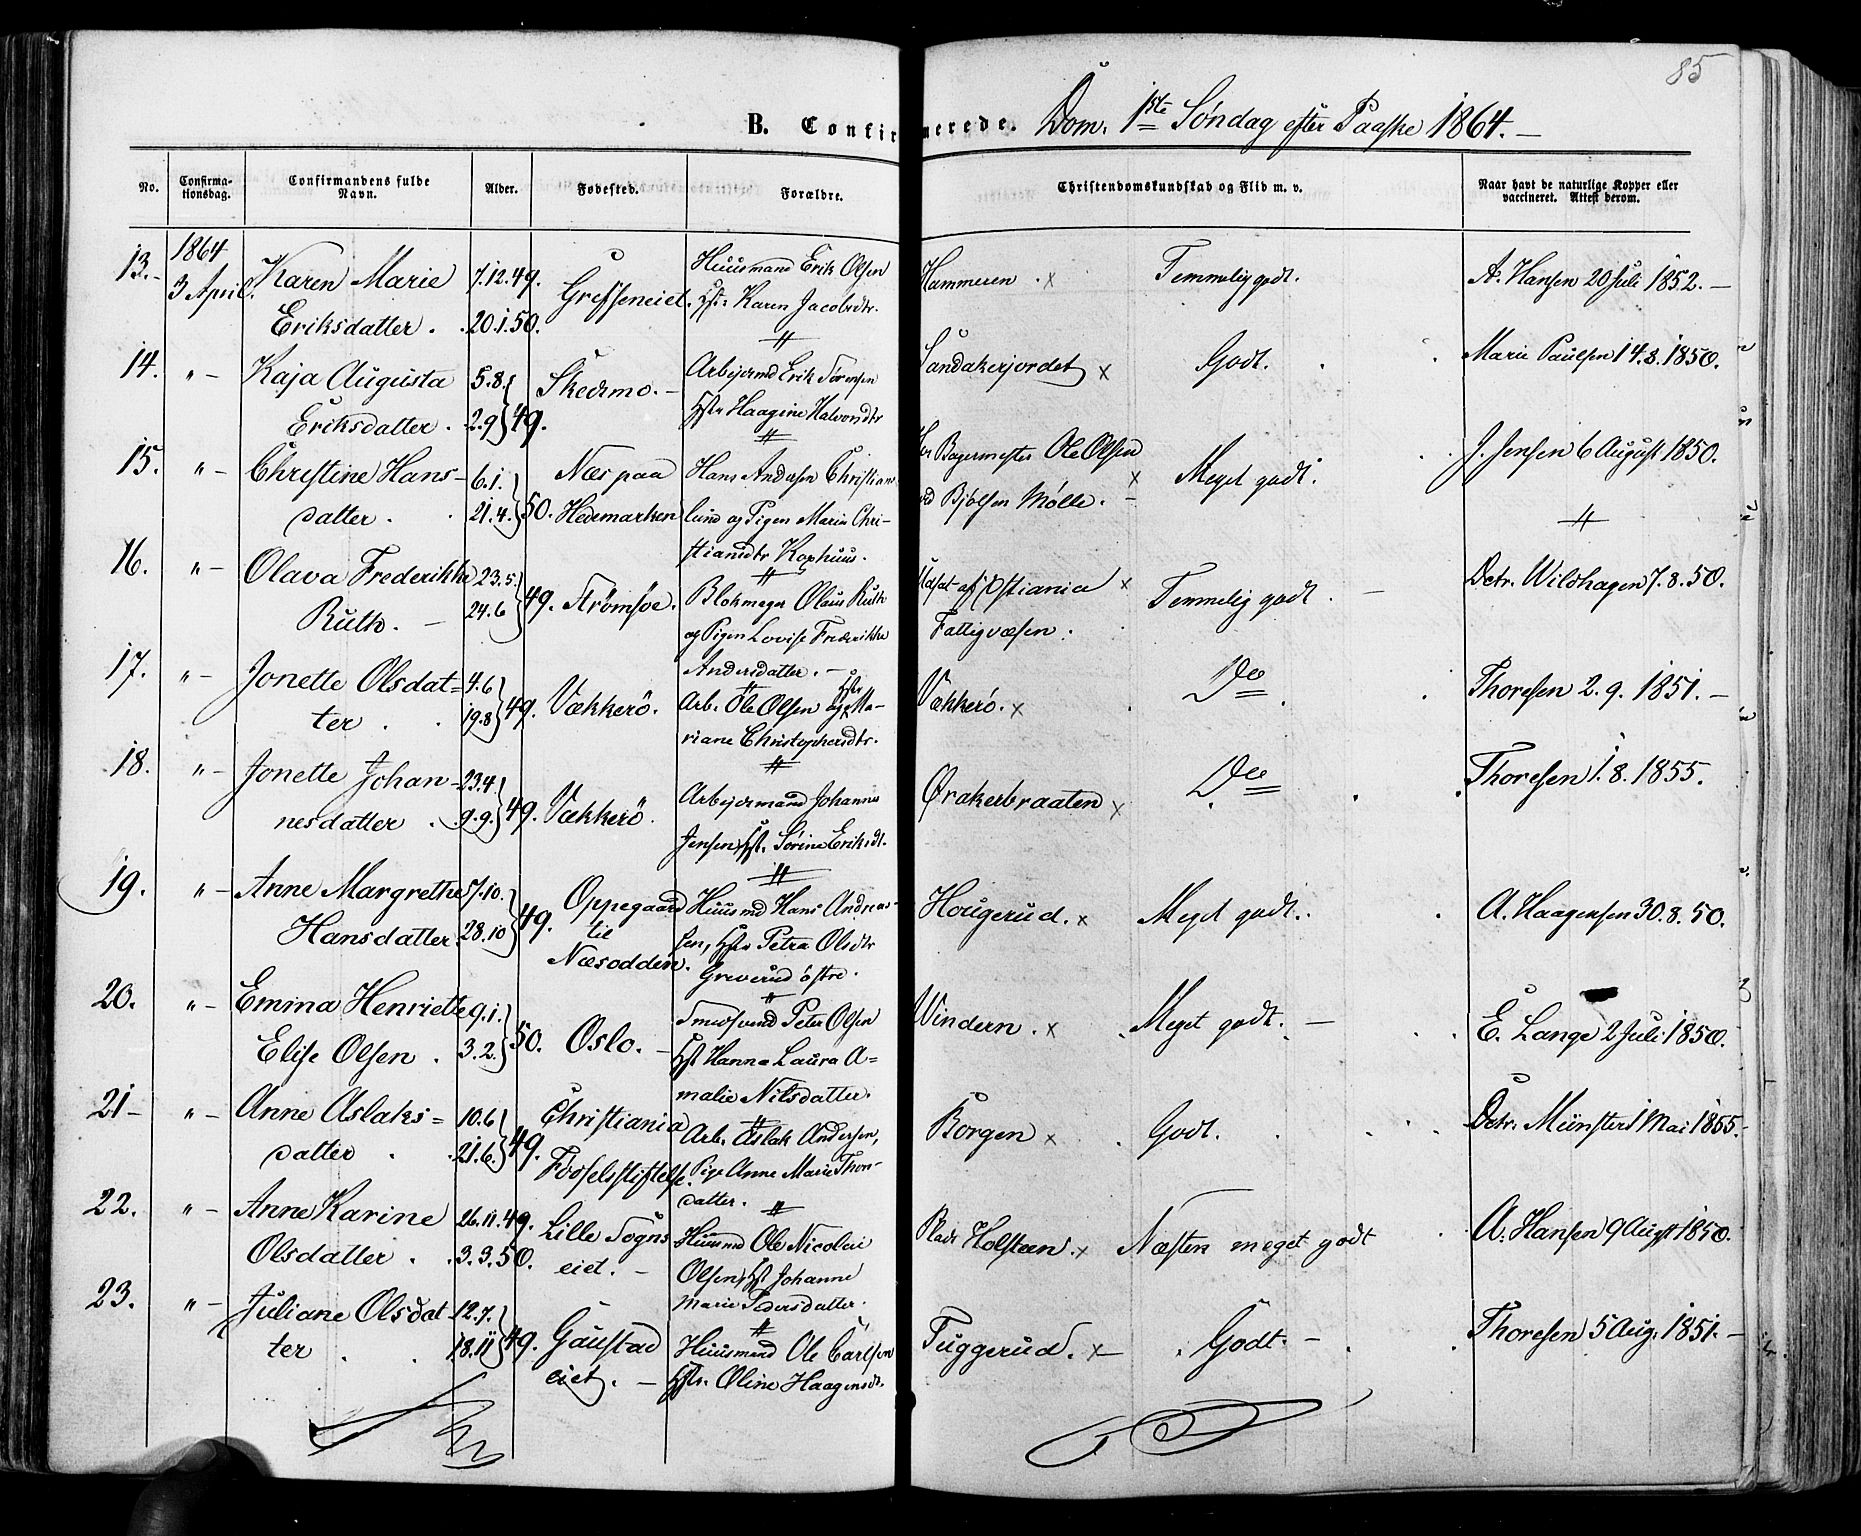 85
B. Confirmerede. Dom. 1ste Søndag efter Paaske 1864. –
No. Confirma-tionsdag. Confirmandens fulde Navn. Alder. Fødested. Forældre. Christendomskundskab og Flid m. v. Naar havt de naturlige Kopper eller vaccineret. Attest derom.
1864
13. – 3 April. Karen Marie 7.12.49. Grefseneiet. Huusmand Erik Olsen Hammeren . x Temmelig godt. A. Hansen 20 Juli 1852. –
Eriksdatter . 20.1.50. Hst. Karen Jacobsdtr.
14. " – Kaja Augusta 5.8. Skedsmo. – Arbejdsmd Erik Sørensen Sandakerjordet x Godt. Marie Paulsen 14.8.1850.
Eriksdatter . 2.9 49. Hstr Haagine Halvorsdtr
15. " – Christine Hans- 6.1. Næs paa Hans Andersen Christians- Bagermester Ole Olsen x Meget godt. J. Jensen 6 August 1850.
datter . 21.4. 50. Hedemarken lund og Pigen Marie Chri- ved Bjølsen Mølle. –
stiansdtr Kophuus.
16. " – Olava Frederikke 23.5. 49. Strømsøe. Blokmager Olaus Ruth Udsat af Xstiania x Temmelig godt. – Dctr. Wildhagen 7.8.50.
Ruth. – 24.6 og Pigen Lovise Frederikke Fattigvæsen.
Andersdatter. –
17. " – Jonette Olsdat= 4.6 49. Vækkerö. Arb. Ole Olsen og Hstr Ma- Vækkerö. x Do Thoresen 2.9.1851. –
ter . 19.8 riane Christophersdtr.
18. " – Jonette Johan- 23.4 49. Vækkerö. Arbejdsmand Johannes Ørakerbraaten x Do Thoresen 1.8.1855.
nesdatter . 9.9. Jensen, Hst. Sørine Eriksdt.
19. " – Anne Margrethe 7.10. 49. Oppegaard Huusmd Hans Andreas- Hougerud. x Meget godt. A. Haagensen 30.8.50.
Hansdatter 28.10 til sen, Hstr Petra Olsdtr
Næsodden. Greverud östre.
20. " – Emma Henriette 9.1. 50. Oslo. – Smedsvend Peter Olsen Vindern. x Meget godt. – E. Lange 2 Juli 1850.
Elise Olsen . 3.2. Hst Hanna Laura A=
malie Nilsdatter.
21 – " – Anne Aslaks= 10.6 49. Christiania Arb. Aslak Andersen, Borgen x Godt. Dctr. Münster 1 Mai 1855.
datter . 21.6. Fødselsstiftelse. Pige Anne Marie Thor-
datter.
22. " – Anne Karine 26.11.49. Lille Sogns Huusmd Ole Nicolai Plads Holsteen. x Næsten meget godt A. Hansen 9 Augst 1850.
Olsdatter . 3.3.50. eiet. – Olsen, Hst Johanne
Marie Pedersdatter.
23. " – Juliane Olsdat 12.7. 49. Gaustad Huusmand Ole Carlsen Tuggerud. x – Godt – Thoresen 5 Aug. 1851. –
ter . 18.11 eiet. – Hstr. Oline Haagensdt.